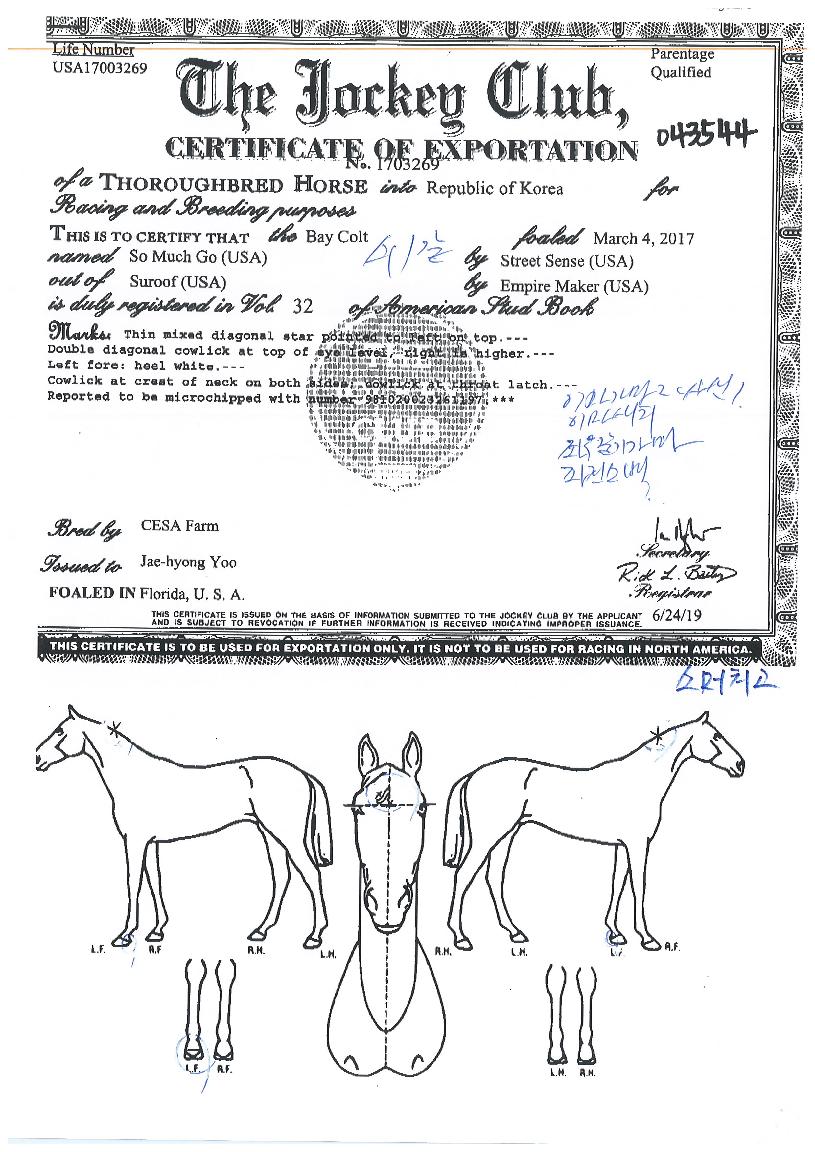 Life Number
USA17003269
Parentage
Qualified
The Jockey Club,
043544
CERTIFICATE OF EXPORTATION
No. 1703269
of a THOROUGHBRED HORSE into Republic of Korea for
Racing and Breeding purposes
THIS IS TO CERTIFY THAT the Bay Colt foaled March 4, 2017
named So Much Go (USA) by Street Sense (USA)
out of Suroof (USA) by Empire Maker (USA)
is duly registered in Vol. 32 of American Stud Book
Marks: Thin mixed diagonal star pointed to left on top.---
Double diagonal cowlick at top of eye level, right is higher.---
Left fore: heel white.---
Cowlick at crest of neck on both sides; cowlick at throat latch.---
Reported to be microchipped with number 981020023261197. ***
좌전소백
Bred by CESA Farm
Issued to Jae-hyong Yoo
FOALED IN Florida, U. S. A.
Secretary
Rick L. Bailey
Registrar
THIS CERTIFICATE IS ISSUED ON THE BASIS OF INFORMATION SUBMITTED TO THE JOCKEY CLUB BY THE APPLICANT
AND IS SUBJECT TO REVOCATION IF FURTHER INFORMATION IS RECEIVED INDICATING IMPROPER ISSUANCE.
6/24/19
THIS CERTIFICATE IS TO BE USED FOR EXPORTATION ONLY. IT IS NOT TO BE USED FOR RACING IN NORTH AMERICA.
소머치고
L.F. R.F. R.H. L.H. R.H. L.H. L.F. R.F.
L.F. R.F. L.H. R.H.